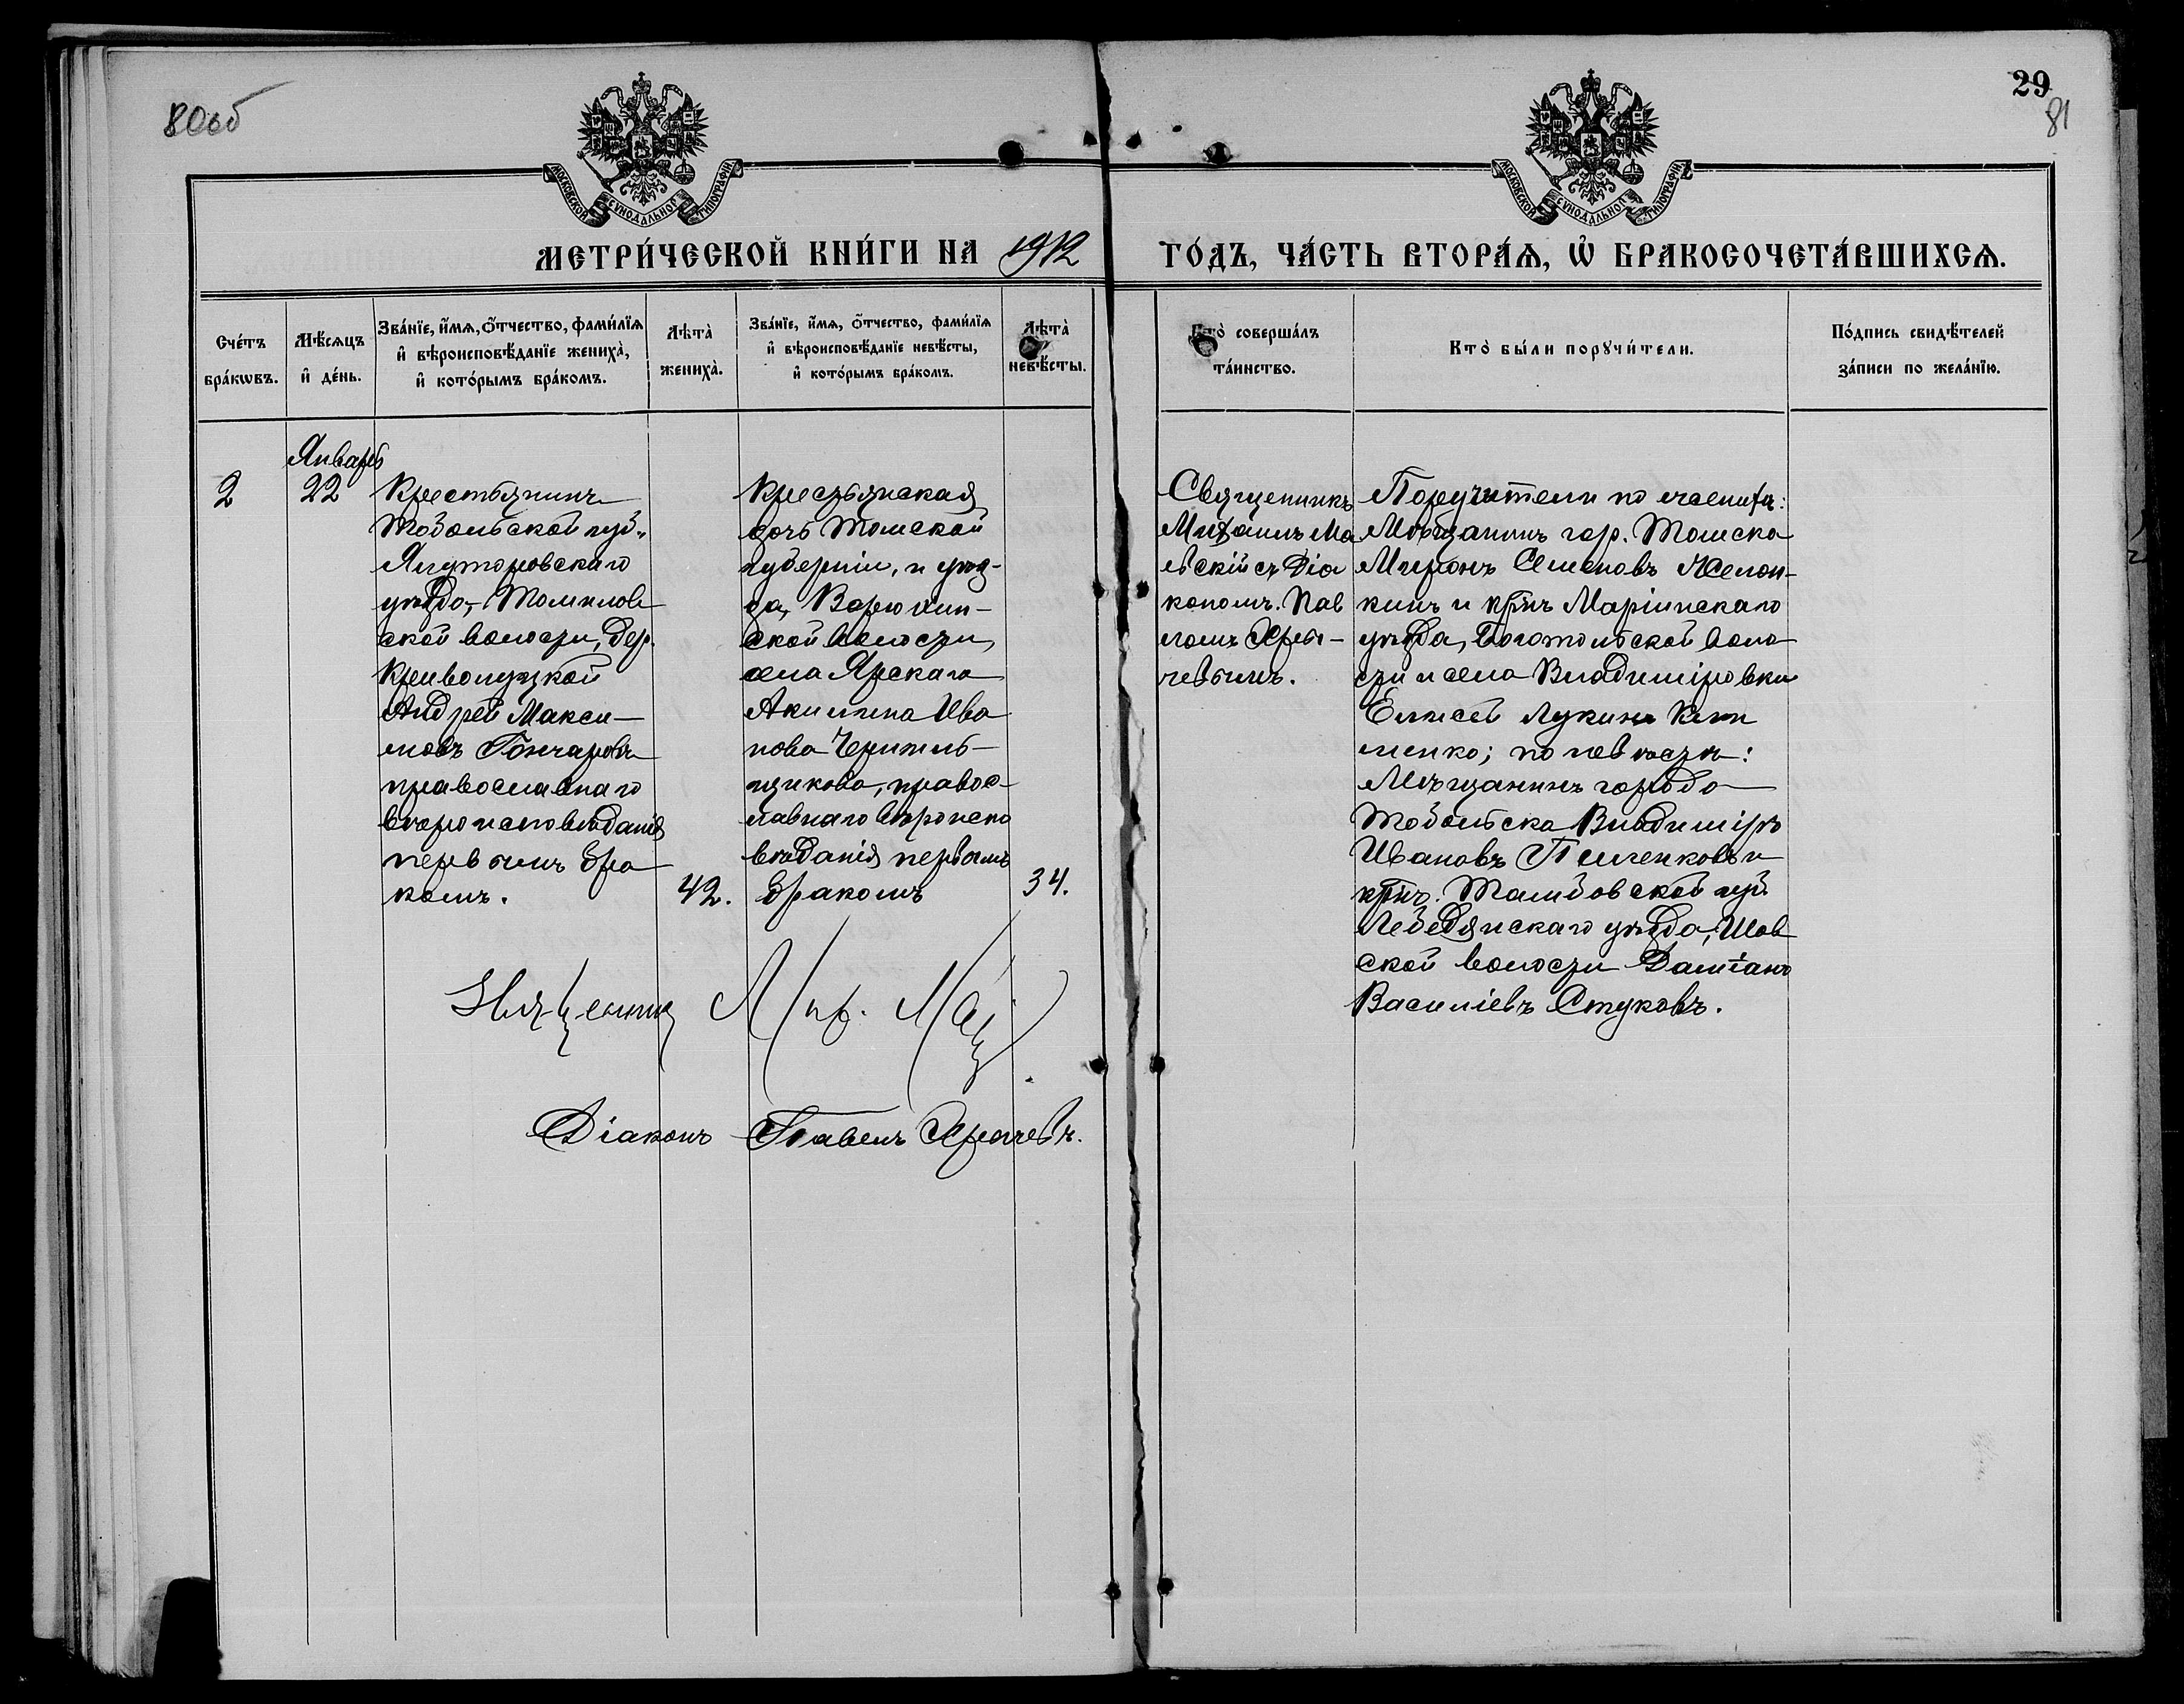 80об
29
81
МОСКОВСКОЙ СѴНОДАЛЬНОЙ ТИПОГРАФІИ
МОСКОВСКОЙ СѴНОДАЛЬНОЙ ТИПОГРАФІИ
МЕТРИ́ЧЕСКОЙ КНИ́ГИ НА 1912 ГО́ДЪ, ЧА́СТЬ ВТОРА́Ѧ, Ѡ҆ БРАКОСОЧЕТА́ВШИХСѦ.
Сче́тъ
бра́кѡвъ.
Мѣ́сѧцъ
и҆ де́нь.
Зва́нїе, и҆́мѧ, ѻ҆́тчество, фами́лїѧ
и҆ вѣроисповѣ́данїе жениха̀,
и҆ кото́рымъ бра́комъ.
Лѣта̀
жениха̀.
Зва́нїе, и҆́мѧ, ѻ҆́тчество, фами́лїѧ
и҆ вѣроисповѣ́данїе невѣ́сты,
и҆ кото́рымъ бра́комъ.
Лѣта̀
невѣ́сты.
Кто̀ соверша́лъ
та́инство.
Кто̀ бы́ли порꙋчи́тели.
По́дпись свидѣ́телей
за́писи по жела́нїю.
2
Январь
22
Крестьянинъ
Тобольской губ.
Ялуторовскаго
уѣзда, Томилов
ской волости, дер.
Криволуцкой
Андрей Макси-
мовъ Гончаровъ
православнаго
вѣроисповѣданія
первымъ бра
комъ.
42.
Крестьянская
дочь Томской
губерніи, и уѣз-
да, Варюхин-
ской волости,
села Ярскаго
Акилина Ива
нова Черниль-
щикова, правос-
лавнаго вѣроиспо
вѣданія первымъ
бракомъ
34.
Священникъ
Михаилъ Ма
ѣскій съ Діа
кономъ Пав
ломъ Хры-
чевымъ.
Поручители по женихѣ:
Мѣщанинъ гор. Томска
Миронъ Семеновъ Желон-
кинъ и кр͠нъ Маріинскаго
уѣзда, Боготольской воло
сти и села Владиміровки
Елисей Лукинъ Кли
менко; по невѣстѣ:
Мѣщанинъ города
Тобольска Владиміръ
Ивановъ Пиленковъ и
кр͠нъ Тамбовской губ.
Лебедянскаго уѣзда, Шов
ской волости Даміанъ
Василіевъ Стуковъ.
Священникъ Мих.
Діаконъ Павелъ Хрычевъ.